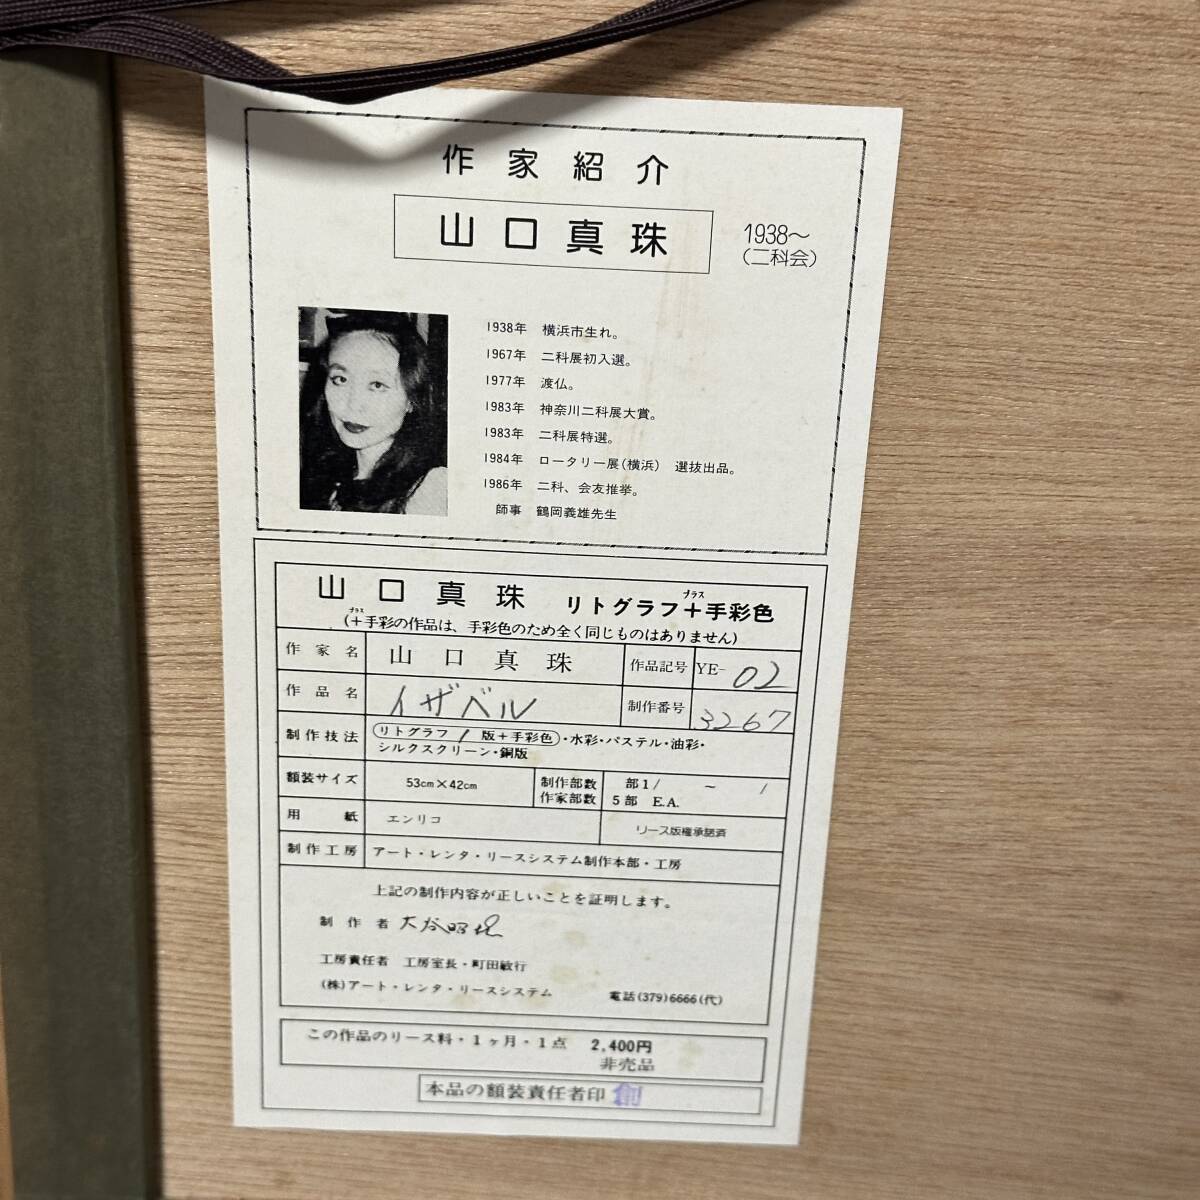 作家紹介
山口真珠
1938～
(二科会)
1938年 横浜市生れ。
1967年 二科展初入選。
1977年 渡仏。
1983年 神奈川二科展大賞。
1983年 二科展特選。
1984年 ロータリー展(横浜) 選抜出品。
1986年 二科、会友推挙。
師事 鶴岡義雄先生
山口真珠 リトグラフ+手彩色
プラス
(+手彩の作品は、手彩色のため全く同じものはありません)
プラス
作家名 山口真珠 作品記号 YE-02
作品名 イザベル 制作番号 3267
制作技法 リトグラフ / 版+手彩色・水彩・パステル・油彩・
シルクスクリーン・銅版
額装サイズ 53cm×42cm 制作部数 部1/ ～ /
作家部数 5部 E.A.
用紙 エンリコ リース版権承諾済
制作工房 アート・レンタ・リースシステム制作本部・工房
上記の制作内容が正しいことを証明します。
制作者 大谷昭
工房責任者 工房室長・町田敏行
(株)アート・レンタ・リースシステム 電話(379)6666(代)
この作品のリース料・1ヶ月・1点 2,400円
非売品
本品の額装責任者印 創